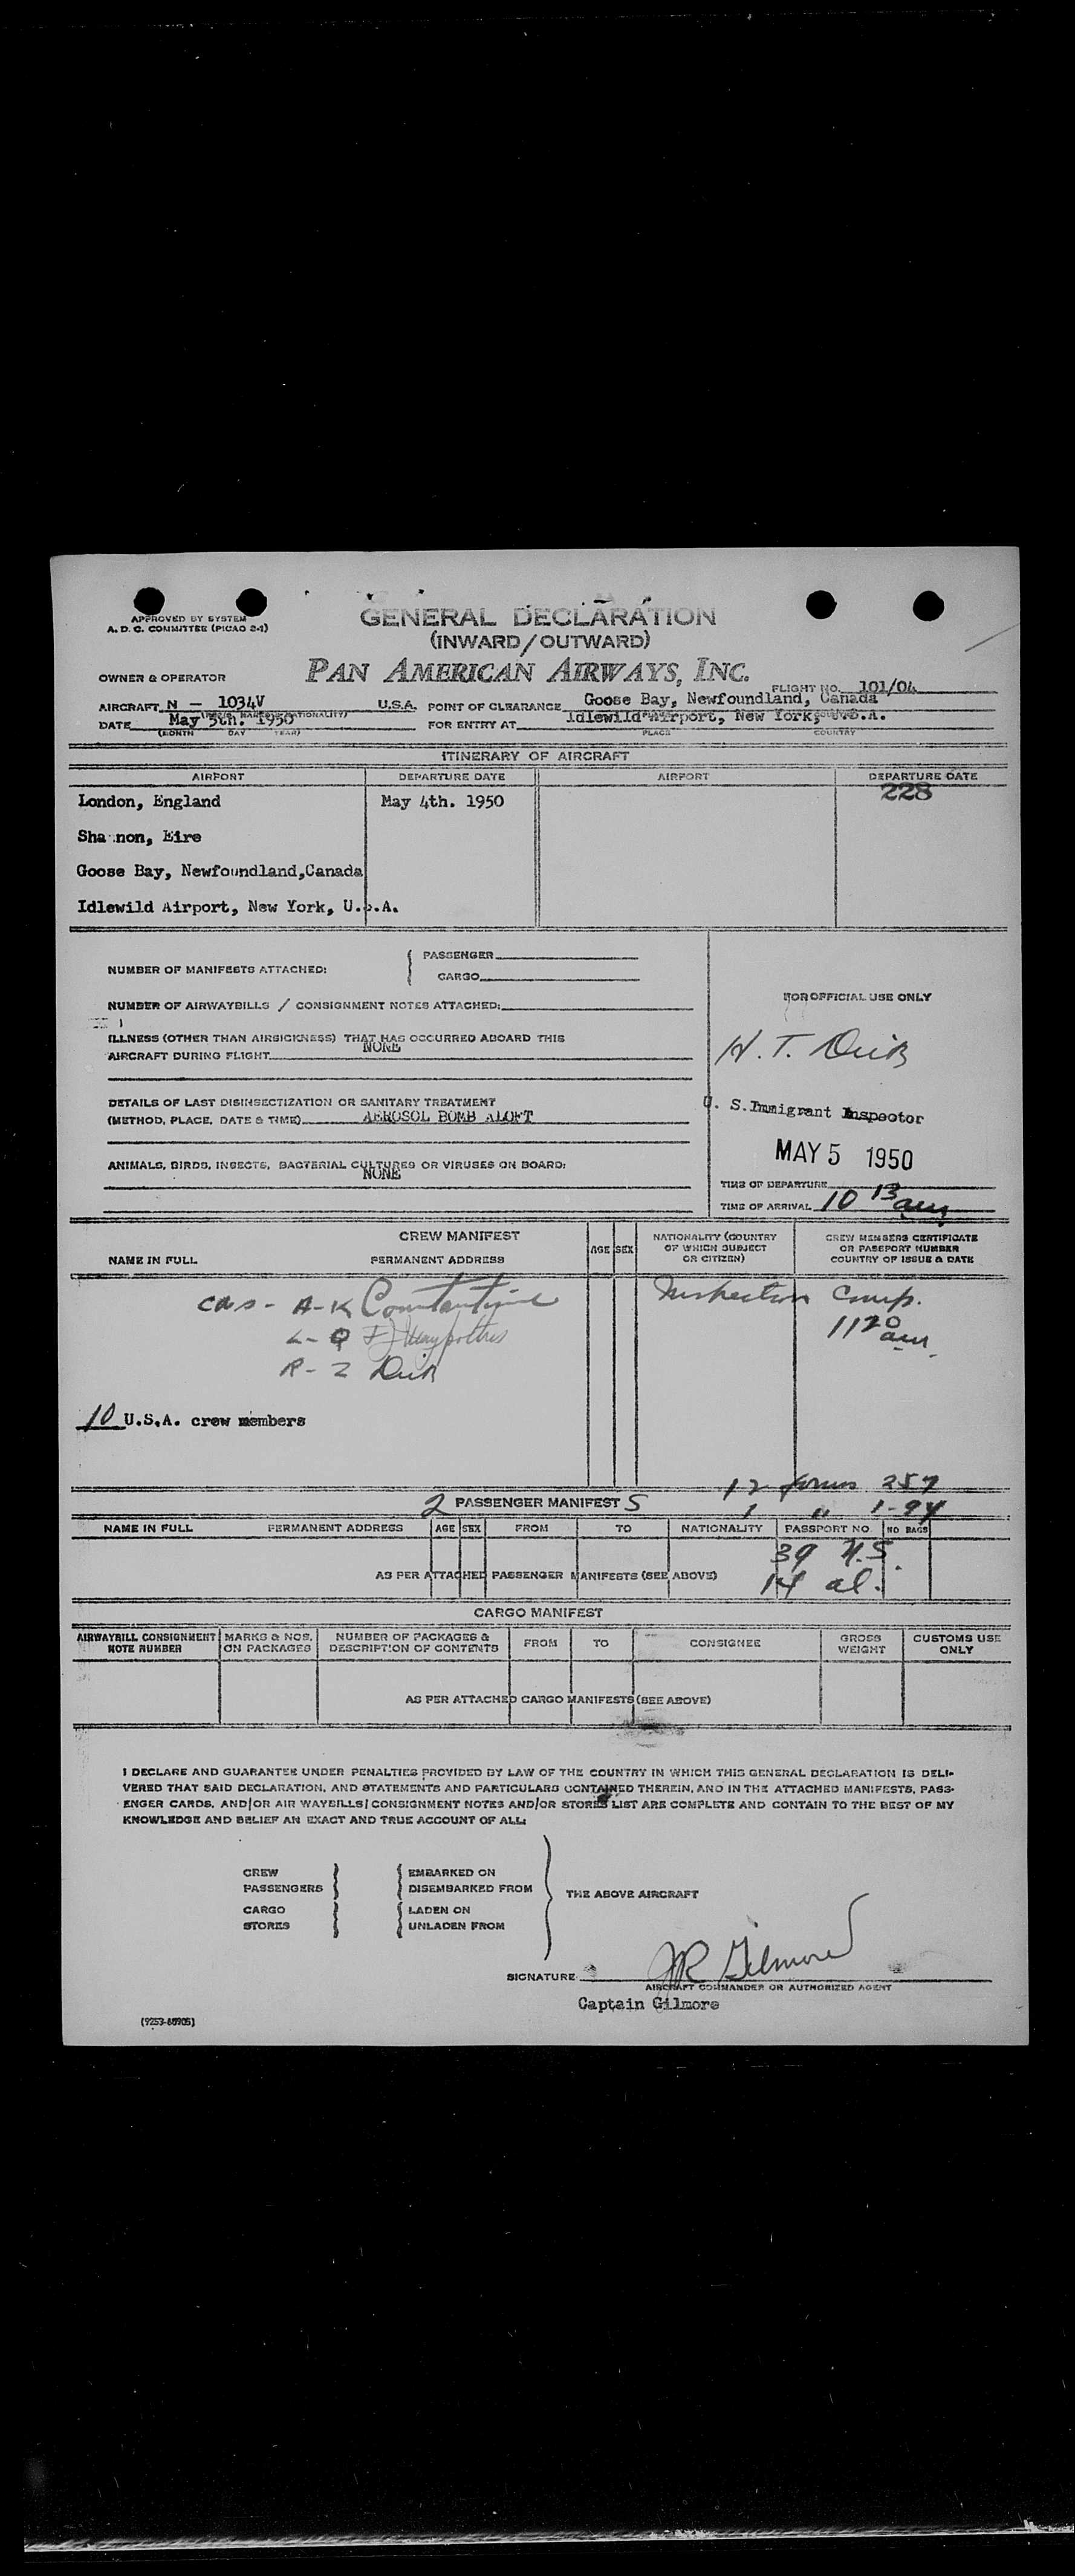 APPROVED BY SYSTEM
A. D. C. COMMITTEE (PICAO 2-1)
GENERAL DECLARATION
(INWARD/OUTWARD)
OWNER & OPERATOR
PAN AMERICAN AIRWAYS, INC.
FLIGHT NO. 101/04
AIRCRAFT N - 1034V U.S.A. POINT OF CLEARANCE Goose Bay, Newfoundland, Canada
DATE May 5th. 1950 FOR ENTRY AT Idlewild Airport, New York, U.S.A.
(MONTH DAY YEAR) PLACE COUNTRY
ITINERARY OF AIRCRAFT
AIRPORT DEPARTURE DATE AIRPORT DEPARTURE DATE
228
London, England May 4th. 1950
Sha non, Eire
Goose Bay, Newfoundland,Canada
Idlewild Airport, New York, U.S.A.
NUMBER OF MANIFESTS ATTACHED: PASSENGER
CARGO
NUMBER OF AIRWAYBILLS / CONSIGNMENT NOTES ATTACHED:
ILLNESS (OTHER THAN AIRSICKNESS) THAT HAS OCCURRED ABOARD THIS
AIRCRAFT DURING FLIGHT NONE
DETAILS OF LAST DISINSECTIZATION OR SANITARY TREATMENT
(METHOD, PLACE, DATE & TIME) AEROSOL BOMB ALOFT
ANIMALS, BIRDS, INSECTS, BACTERIAL CULTURES OR VIRUSES ON BOARD:
NONE
FOR OFFICIAL USE ONLY
H. T.
U. S. Immigrant Inspector
MAY 5 1950
TIME OF DEPARTURE
TIME OF ARRIVAL 10 13 am
CREW MANIFEST
NAME IN FULL PERMANENT ADDRESS AGE SEX NATIONALITY (COUNTRY OF WHICH SUBJECT OR CITIZEN) CREW MEMBERS CERTIFICATE OR PASSPORT NUMBER COUNTRY OF ISSUE & DATE
A-K Constantine Inspection Comp.
1120 am
R-Z
10 U.S.A. crew members
12 forms 257
2 PASSENGER MANIFEST S 1 " 1-94
NAME IN FULL PERMANENT ADDRESS AGE SEX FROM TO NATIONALITY PASSPORT NO. NO BAGS
39 U.S.
AS PER ATTACHED PASSENGER MANIFESTS (SEE ABOVE) 14 al.
CARGO MANIFEST
AIRWAYBILL CONSIGNMENT NOTE NUMBER MARKS & NOS. ON PACKAGES NUMBER OF PACKAGES & DESCRIPTION OF CONTENTS FROM TO CONSIGNEE GROSS WEIGHT CUSTOMS USE ONLY
AS PER ATTACHED CARGO MANIFESTS (SEE ABOVE)
I DECLARE AND GUARANTEE UNDER PENALTIES PROVIDED BY LAW OF THE COUNTRY IN WHICH THIS GENERAL DECLARATION IS DELI-
VERED THAT SAID DECLARATION, AND STATEMENTS AND PARTICULARS CONTAINED THEREIN, AND IN THE ATTACHED MANIFESTS, PASS-
ENGER CARDS, AND/OR AIR WAYBILLS/CONSIGNMENT NOTES AND/OR STORES LIST ARE COMPLETE AND CONTAIN TO THE BEST OF MY
KNOWLEDGE AND BELIEF AN EXACT AND TRUE ACCOUNT OF ALL:
CREW EMBARKED ON
PASSENGERS DISEMBARKED FROM THE ABOVE AIRCRAFT
CARGO LADEN ON
STORES UNLADEN FROM
SIGNATURE JR Gilmore
AIRCRAFT COMMANDER OR AUTHORIZED AGENT
Captain Gilmore